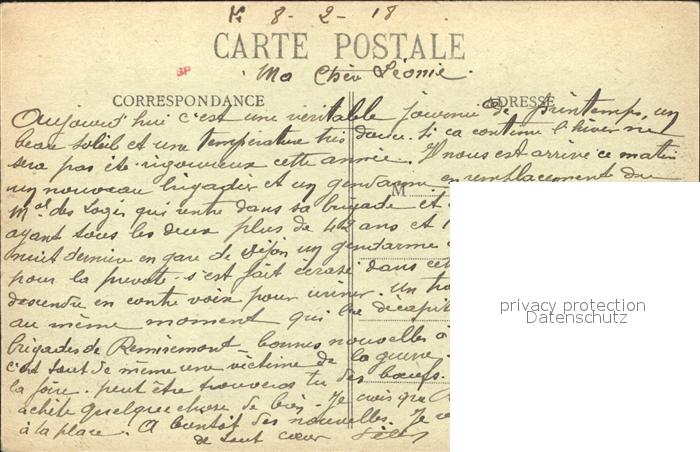 8-2-18
CARTE POSTALE
Ma Chèr Léonie.
CORRESPONDANCE ADRESSE
Aujourd'hui c'est une véritable journée de printemps, un
beau soleil et une température très douce. si ca continue l'hiver ne
sera pas été rigoureux cette année. Il nous est arrivé ce matin
un nouveau brigadier et un gendarme en remplacement du
M
Mal des Logis qui rentre dans sa brigade et
ayant tous les deux plus de 42 ans et
nuit dernière en gare de Dijon un gendarme
pour la prevoté s'est fait écrasé dans cet
descendre en contre voix pour uriner. Un
au même moment qui l'a décapit
brigades de Remiremont bonnes nouvelles à
c'est tout de même une victime de la guerre.
la foire. peut être trouveras tu des boeufs.
achète quelque chose de bien. Je crois que
à la place. A bientôt des nouvelles. Je
de tout coeur
privacy protection
Datenschutz